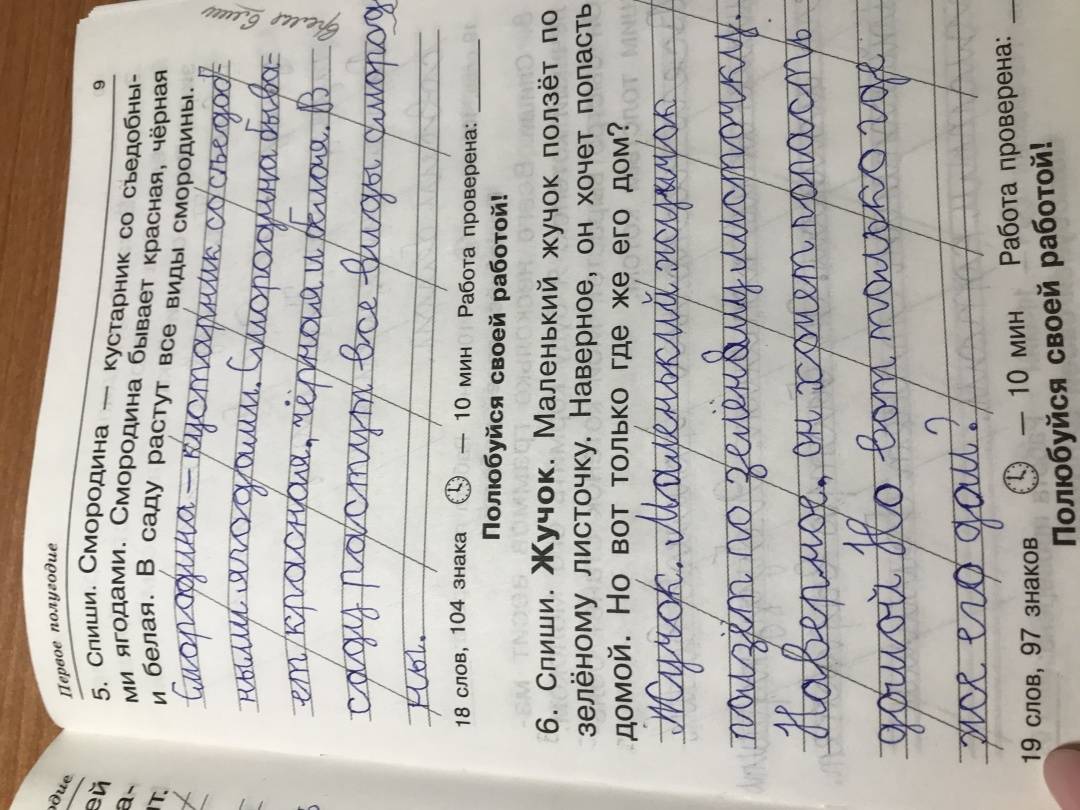 Первое полугодие 9
5. Спиши. Смородина — кустарник со съедобны-
ми ягодами. Смородина бывает красная, чёрная
и белая. В саду растут все виды смородины.
Смородина – кустарник со съедоб=
ными ягодами. Смородина быва=
ет красная, чёрная и белая. В
саду растут все виды смороди
ны.
18 слов, 104 знака — 10 мин Работа проверена:
Полюбуйся своей работой!
6. Спиши. Жучок. Маленький жучок ползёт по
зелёному листочку. Наверное, он хочет попасть
домой. Но вот только где же его дом?
Жучок. Маленький жучок
ползёт по зелёному листочку.
Наверное, он хочет попасть
домой. Но вот только где
же его дом?
19 слов, 97 знаков — 10 мин Работа проверена:
Полюбуйся своей работой!